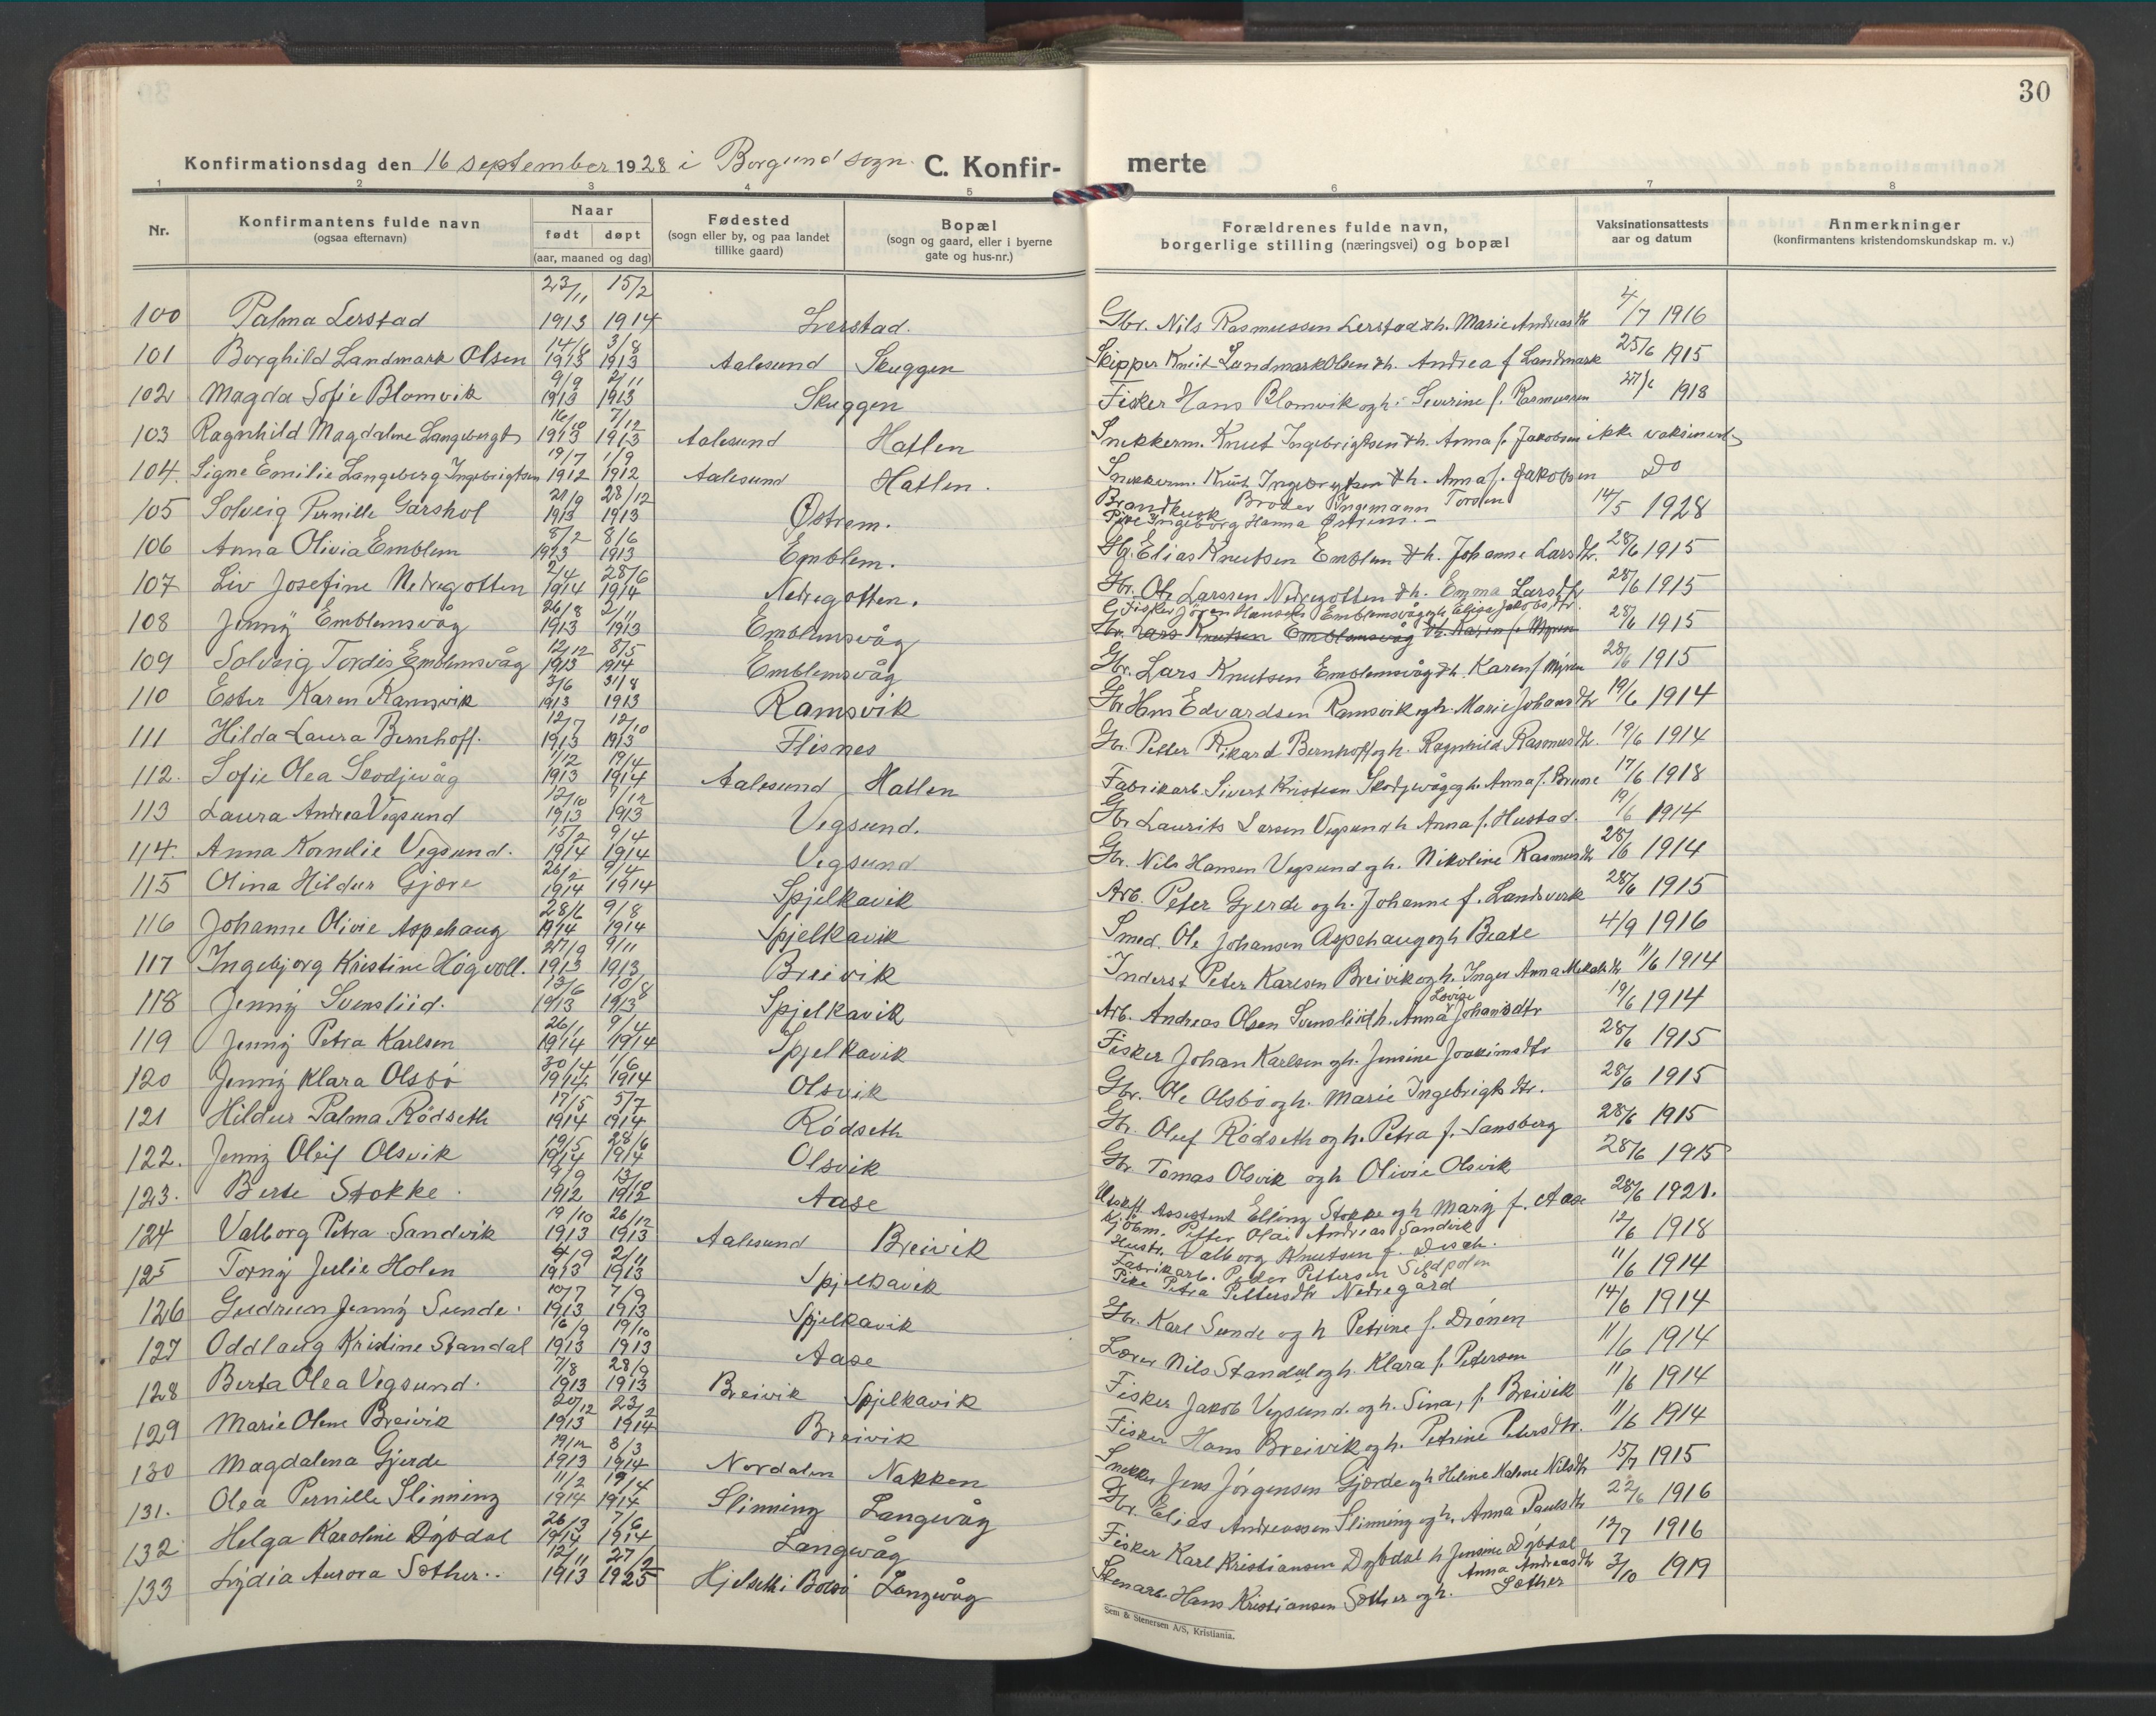 30
Konfirmationsdag den 16 september 1928 i Borgund sogn. C. Konfir- merte
1 2 3 4 5 6 7 8
Nr.
Konfirmantens fulde navn
(ogsaa efternavn)
Naar
født døpt
(aar, maaned og dag)
Fødested
(sogn eller by, og paa landet
tillike gaard)
Bopæl
(sogn og gaard, eller i byerne
gate og hus-nr.)
Forældrenes fulde navn,
borgerlige stilling (næringsvei) og bopæl
Vaksinationsattests
aar og datum
Anmerkninger
(konfirmantens kristendomskundskap m. v.)
23/11 15/2 4
100 Palma Lerstad 1913 1914 Lerstad. Gbr. Nils Rasmussen Lerstad & h. Marie Andreasdtr /7 1916
14/6 3/8
101 Borghild Landmark Olsen 1913 1913 Aalesund Skuggen Skipper Knut Landmark Olsen & h. Andrea f Landmark 25/6 1915
9/9 2/11
102 Magda Sofie Blomvik 1913 1913 Skuggen Fisker Hans Blomvik og h. Severine f. Rasmussen 1918
16/10 7/12
103 Ragnhild Magdalene 1913 1913 Aalesund Hatlen Snekkerm. Knut Ingebrigtsen & h. Anna f. Jakobsen ikke vaksinert
19/7 1/9
104. Signe Emilie Langeberg Ingebrigtsen 1912 1912 Aalesund Hatlen. Snekkerm. Knut Ingebrigtsen & h. Anna f. Jakobsen Do
21/9 28/12
105 Solveig Pernille Garshol 1913 1913 Østrem. Brandkusk Broder Ingemann Torsen 14/5 1928
Pike Ingeborg Hanna Østrem. -
8/2 8/6
106 Anna Olivia Emblem 1913 1913 Emblem. Gbr. Elias Knutsen Emblem & h. Johanne Larsdtr. 28/6 1915
2/4 28/6
107 Liv Josefine Nedregotten 1914 1914 Nedregotten. Gbr. Ole Larssen Nedregotten & h. Emma Larsdtr 28/6 1915
26/8 2/11 Fisker Jören Hansen Emblemsvåg og h. Elise Jakobsdtr.
108 Jenny Emblemsvåg 1913 1913 Emblemsvåg Gbr. Lars Knutsen Emblemsvåg & h. Karen f. Myren 28/6 1915
12/12 8/5
109 Solveig Tordis Emblemsvåg 1913 1914 Emblemsvåg Gbr. Lars Knutsen Emblemsvåg & h. Karen f. Myren 28/6 1915
3/6 31/8
110 Ester Karen Ramsvik 1913 1913 Ramsvik Gbr Hans Edvardsen Ramsvik og h. Marie Johansdtr 19/6 1914
12/7 12/10
111 Hilda Laura Bernhoff. 1913 1913 Flisnes Gbr. Petter Rikard Bernhoff og h. Ragnhild Rasmusdtr. 19/6 1914
1/12 19/4
112. Sofie Olea Skodjevåg 1913 1914 Aalesund Hatlen Fabrikarb. Sivert Kristian Skodjevåg og h. Anna f. Brune 17/6 1918
12/10 7/12
113 Laura Andrea Vegsund 1913 1913 Vegsund. Gbr Laurits Larsen Vegsund h Anna f. Hustad. 19/6 1914
15/2 9/4
114. Anna Kornelie Vegsund. 1914 1914 Vegsund Gbr. Nils Hansen Vegsund og h. Nikoline Rasmusdtr 28/6 1914
26/2 9/4
115 Olina Hildur Gjære 1914 1914 Spjelkavik Arb. Peter Gjerde og h. Johanne f. Landverk 28/6 1915
28/6 9/8
116 Johanne Olivie Aspehaug 1914 1914 Spjelkavik Smed. Ole Johansen Aspehaug og h Beate 4/9 1916
27/9 9/11
117 Ingebjorg Kristine Høgvoll. 1913 1913 Breivik Inderst Peter Karlsen Breivik og h. Inger Anna 11/6 1914
13/6 10/8
118 Jenny Svensliid. 1913 1913 Spjelkavik Arb. Andreas Olsen Svensliid h. Anna Lovise Johansdtr 19/6 1914
26/1 9/4
119 Jenny Petra Karlsen 1914 1914 Spjelkavik Fisker Johan Karlsen og h. Jensine Joakimsdtr 28/6 1915
30/4 1/6
120 Jenny Klara Olsbö 1914 1914 Olsvik Gbr. Ole Olsbö og h. Marie Ingebrigtsdtr. 28/6 1915
17/5 5/7
121 Hildur Palma Rödseth 1914 1914 Rödseth Gbr. Oluf Rödseth og h. Petra f. Sansberg 28/6 1915
19/5 28/6
122. Jenny Oleif Olsvik 1914 1914 Olsvik Gbr Tomas Olsvik og h Olivie Olsvik 28/6 1915
9/9 13/10
123. Berte Stokke. 1912 1912 Aase Utskift. Assistent Elling Stokke og h Mary f. Aase 28/6 1921.
19/10 26/12
124 Valborg Petra Sandvik 1913 1913 Aalesund Breivik Kjöbm. Petter Olai Andreas Sandvik 12/6 1918
Hustr. Valborg Knutsen f. Desch.
4/9 2/11
125 Torny Julie Holen 1913 1913 Spjelkavik Fabrikarb. Peder Pettersen Sildpolen 11/6 1914
Pike Petra Pettersdtr Nedregård
10/7 7/9
126 Gudrun Jenny Sunde. 1913 1913 Spjelkavik Gbr. Karl Sunde og h Petrine f. Drönen 14/6 1914
16/9 19/10
127 Oddlaug Kristine Standal 1913 1913 Aase Lærer Nils Standal og h. Klara f. Petersen 11/6 1914
7/8 28/9
128 Berta Olea Vegsund. 1913 1913 Breivik Spjelkavik Fisker Jakob Vegsund. og h. Sina, f. Breivik 11/6 1914
20/12 23/2
129 Marie Olene Breivik 1913 1914 Breivik Fisker Hans Breivik og h. Petrine Petersdtr. 11/6 1914
19/12 8/3
130 Magdalena Gjerde 1913 1914 Nordalen Nakken Snekker Jens Jörgensen Gjerde og h Heline Malene Nilsdtr 15/7 1915
11/2 19/4
131. Olea Pernille Slinning 1914 1914 Slinning Langevåg Gbr. Elias Andreassen Slinning og h. Anna Paulsdtr 22/6 1916
26/3 7/6
132 Helga Karoline Dybdal 1914 1914 Langevåg Fisker Karl Kristiansen Dybdal h Jensine Dybdal 12/7 1916
12/11 27/2 Anna Andreasdtr
133 Lydia Aurora Sother.. 1913 1925 Hjelset i Bolsö Langevåg Stenarb. Hans Kristiansen Sother og h. Sother 3/10 1919
Sem & Stenersen A/S, Kristiania.